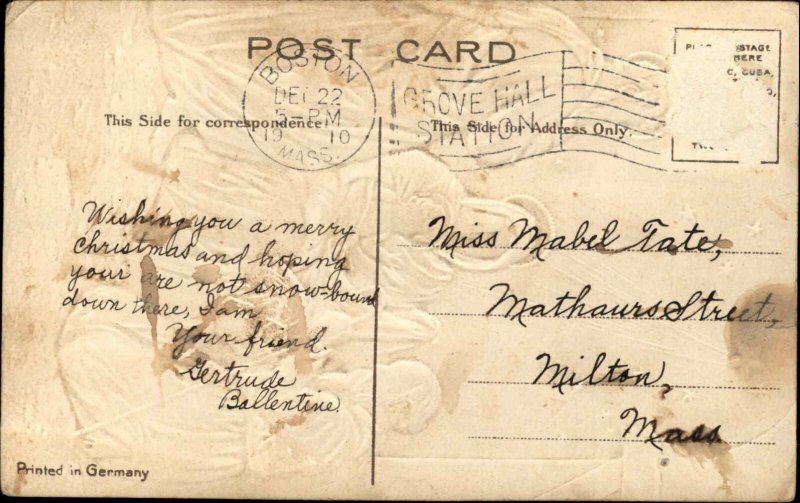 POST CARD
BOSTON
DEC 22
5-PM
19 10
MASS.
GROVE HALL
STATION
STAGE
HERE
C, CUBA,
This Side for correspondence.
This Side for Address Only.
Wishing you a merry
christmas and hoping
your are not snow-bound
down there, I am
Your friend.
Gertrude
Ballentine.
Miss Mabel Tate,
Mathaurs Street,
Milton,
Mass.
Printed in Germany